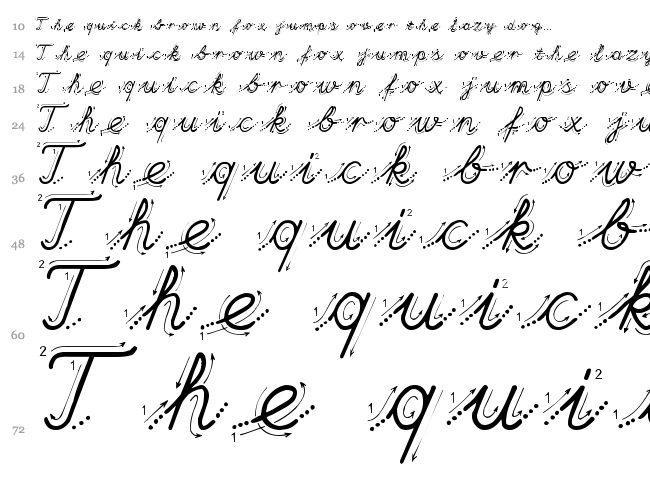 10 The quick brown fox jumps over the lazy dog...
14 The quick brown fox jumps over the lazy
18 The quick brown fox jumps ove
24 The quick brown fox ju
36 The quick brow
48 The quick b
60 The quick
72 The qui